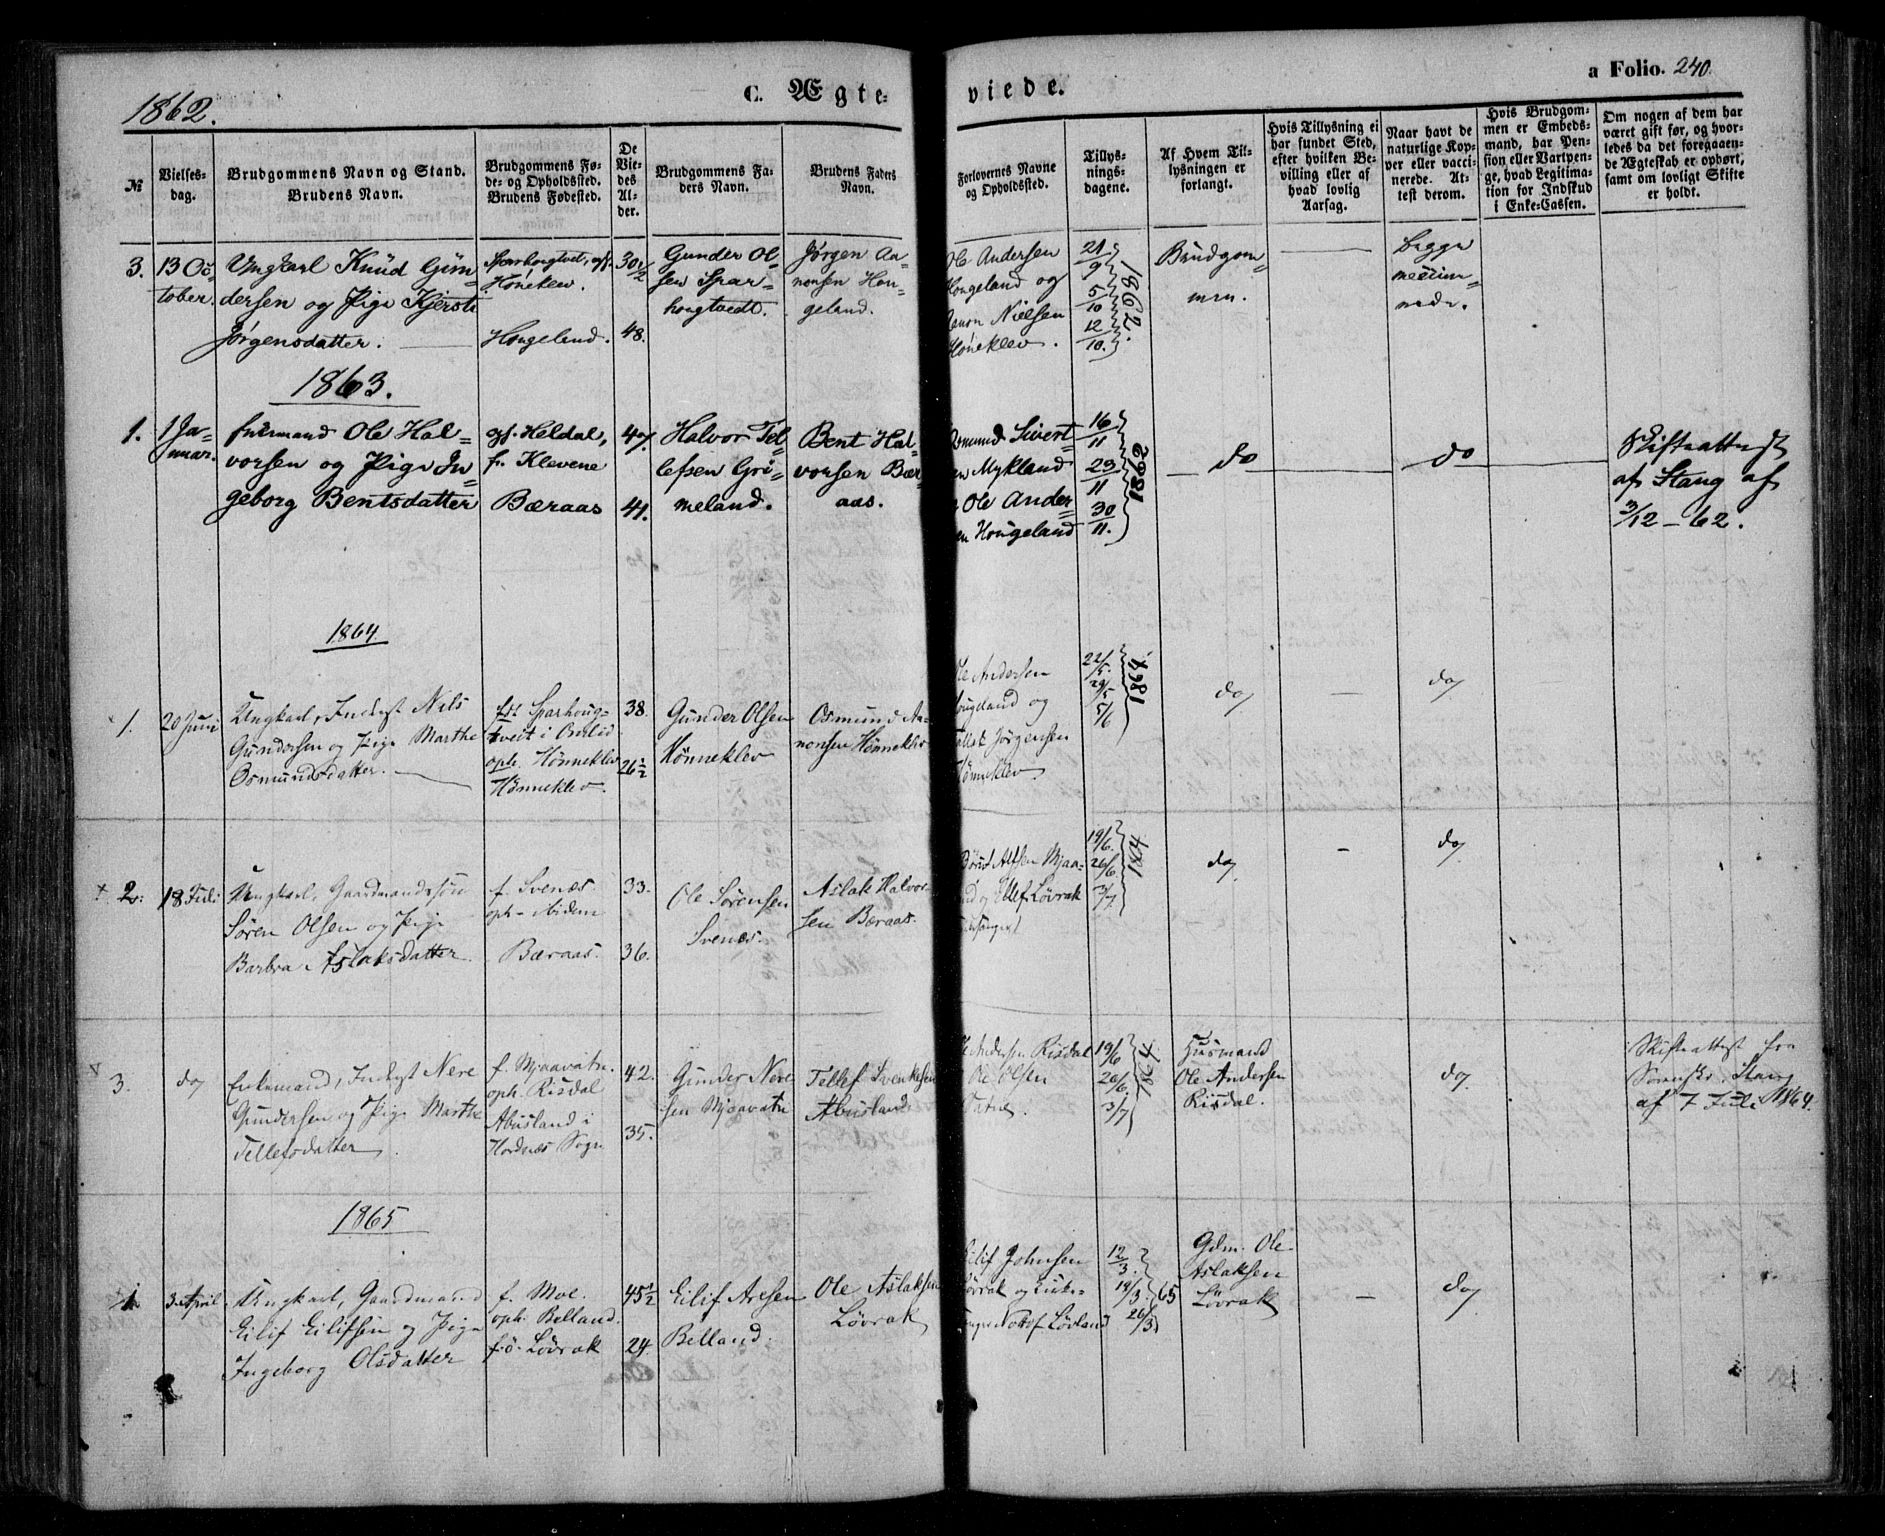 1862.
C. Ægte-
viede.
a Folio. 240.
№
Vielses-
dag.
Brudgommens Navn og Stand.
Brudens Navn.
Brudgommens Fø-
de- og Opholdssted.
Brudens Fødested.
De
Vie-
des
Al-
der.
Brudgommens Fa-
ders Navn.
Brudens Faders
Navn.
Forlovernes Navne
og Opholdssted.
Tillys-
nings-
dagene.
Af Hvem Til-
lysningen er
forlangt.
Hvis Tillysning ei
har fundet Sted,
efter hvilken Be-
villing eller af
hvad lovlig
Aarsag.
Naar havt de
naturlige Kop-
per eller vacci-
nerede. At-
test derom.
Hvis Brudgom-
men er Embeds-
mand, har Pen-
sion eller Vartpen-
ge, hvad Legitima-
tion for Indskud
i Enke-Cassen.
Om nogen af dem har
været gift før, og hvor-
ledes da det foregaaen-
de Ægteskab er ophørt,
samt om lovligt Skifte
er holdt.
3.
13 Oc-
tober.
Ungkarl Knud Gun-
dersen og Pige Kjersti
Jørgensdatter.
Sparhougtvet, opf.
Høneklev.
Hougeland.
30½
48.
Gunder Ol-
sen Spar-
hougtvedt.
Jørgen Aa-
nonsen Hou-
geland.
Ole Andersen
Hougeland og
Nielsen
Høneklev.
21/9
5/10
12/10.
1862.
Brudgom-
men.
Begge
vaccine-
rede.
1863.
1.
1 Ja-
nuar.
Enkemand Ole Hal-
vorsen og Pige In-
geborg Bentsdatter
opf. Heldal,
fr. Klevene
Bæraas
47.
41.
Halvor Tel-
lefsen Grø-
meland.
Bent Hal-
vorsen Bær-
aas.
Osmund Sivert-
en Mykland
Ole Ander-
en Hougeland
16/11
23/11
30/11.
1862
do
do
Skifteattest
af Stang af
3/12 - 62.
1864.
1.
20 Juni
Ungkarl, Inderst Nils
Gundersen og Pige Marthe
Osmundsdatter.
fdt Sparhoug-
tveit i
oph. Hønneklev
Hønneklev.
38.
26½
Gunder Olsen
Hønneklev
Osmund Aa-
nonsen Hønneklev
Ole Andersen
Hougland og
Jørgensen
Hønneklev
22/5.
29/5
5/6
1864
do
do
2.
18 Juli
Ungkarl, Gaardmandssøn
Søren Olsen og Pige
Barbra Aslaksdatter.
f. Svenæs.
oph. ibidem
Bæraas.
33.
36.
Ole Sørensen
Svenæs.
Aslak Halvor-
sen Bæraas.
Alfsen Mjaa-
og Ellef Løvrak
19/6.
26/6.
3/7.
1864
do
do
3.
do
Enkemand, Inderst Nere
Gundersen og Pige Marthe
Tellefsdatter
f. Mjaavatn.
oph. Risdal
Abusland i
Hordnæs Sogn
42.
35.
Gunder Nere-
sen Mjaavatn
Tellef Svenkesen
Abusland
Andersen Risdal
Ole Olsen
19/6
26/6
3/7
1864
Husmand
Ole Andersen
Risdal.
do
Skifteattest fra
Sorenskr. Stang
af 7 Juli 1864.
1865
1.
3. April
Ungkarl, Gaardmand
Eilif Eilifsen og Pige
Ingeborg Olsdatter
f. Moe.
oph. Belland.
f.ö. Lövrak
45½
24.
Eilif Aresen
Belland.
Ole Aslaksen
Lövrak
Eilif Johnsen
Lövrak og Kirke-
sanger Lövland
12/3.
19/3
26/3
65
Gdm. Ole
Aslaksen
Lövrak
do